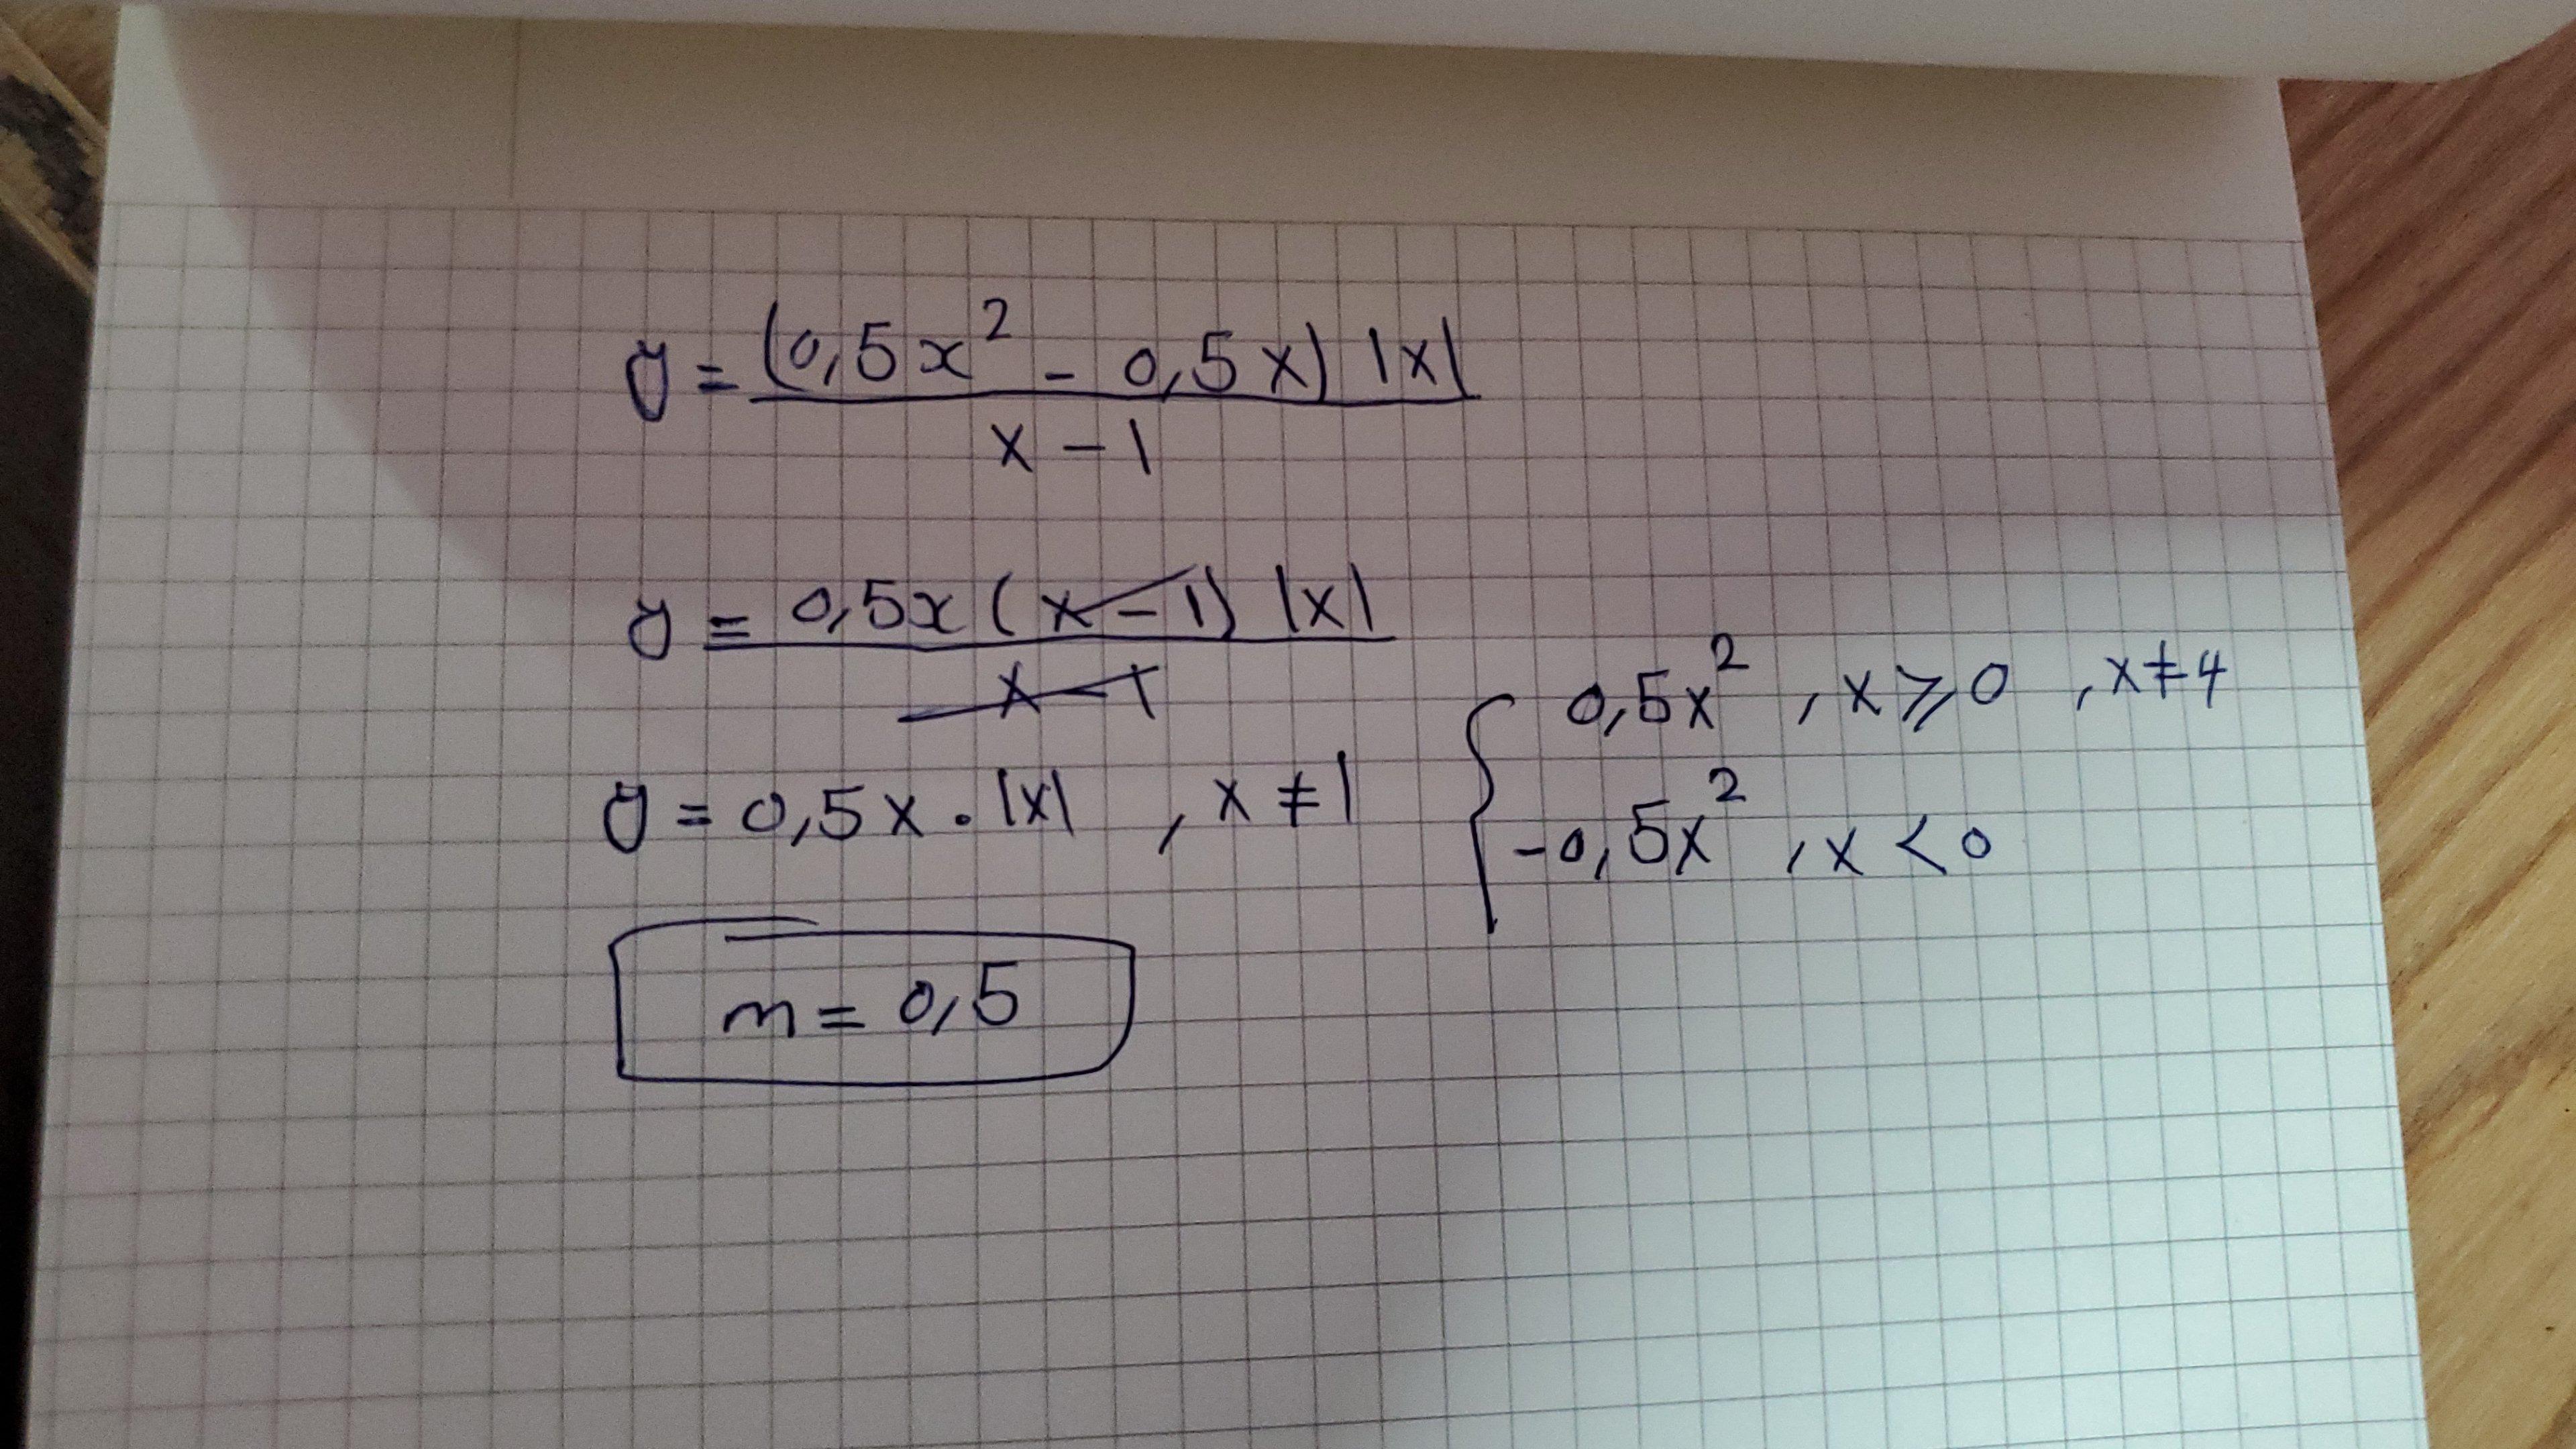 y = (0,5x² - 0,5x) |x|
x - 1
y = 0,5x (x - 1) |x|
x - 1
y = 0,5x · |x| , x ≠ 1
{ 0,5x² , x ⩾ 0 , x ≠ 4
-0,5x² , x < 0
m = 0,5